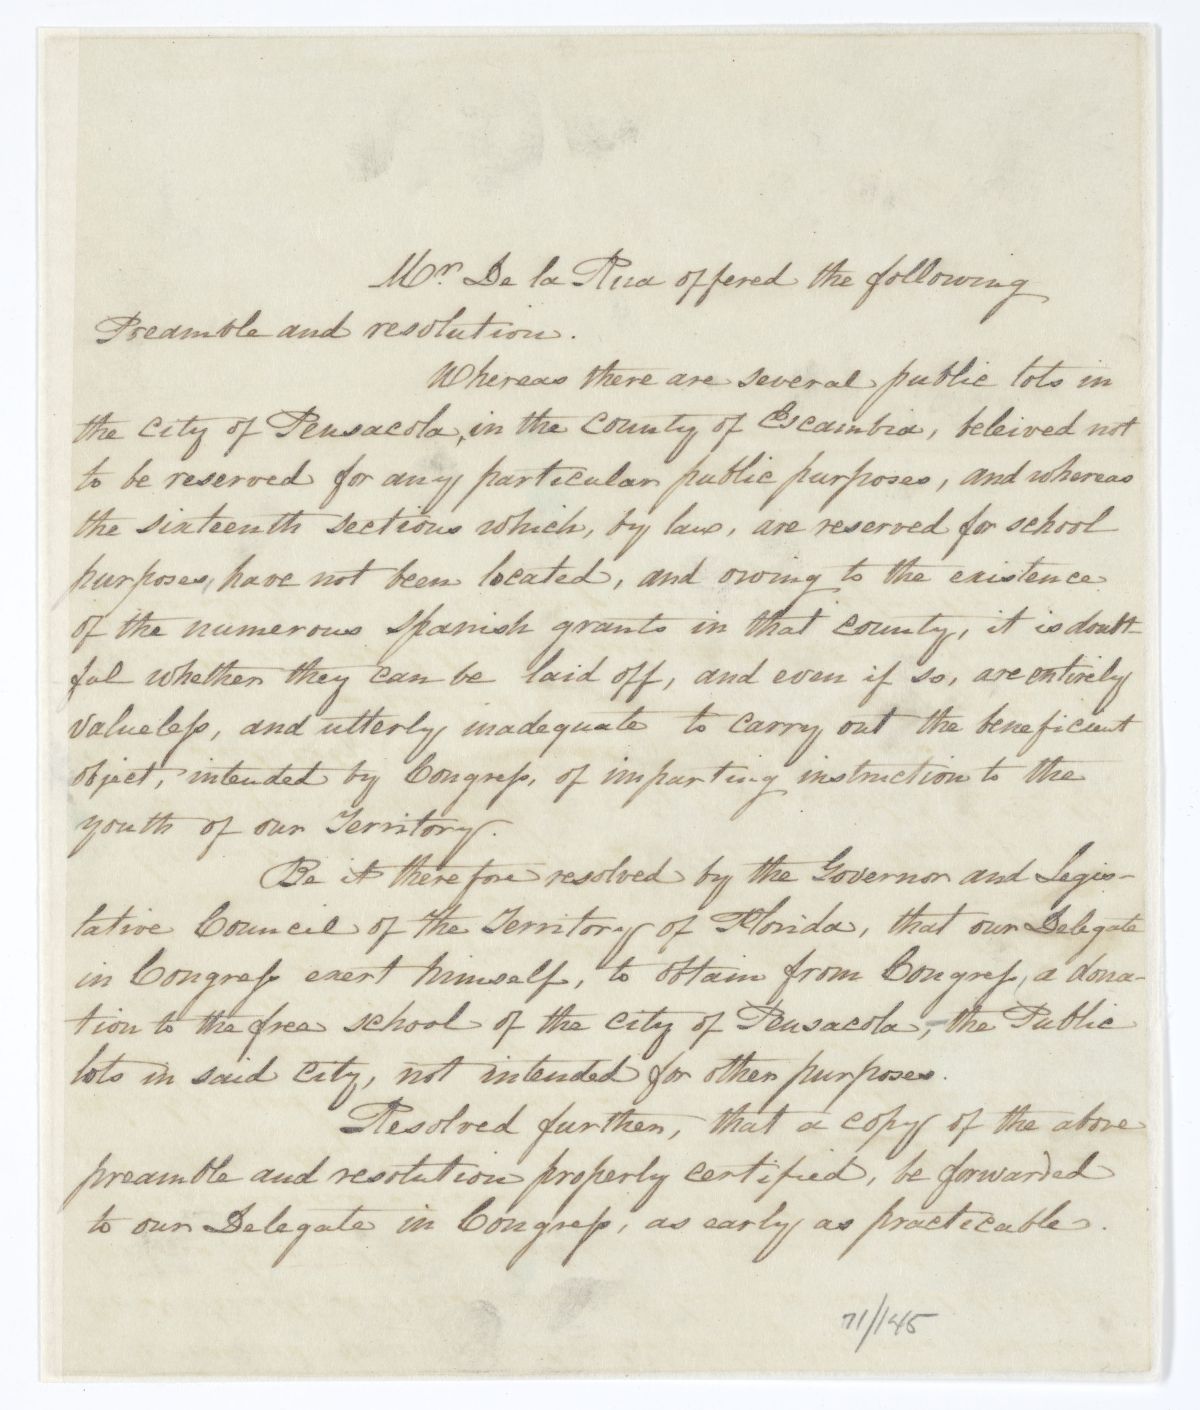 Mr. De la Rua offered the following
Preamble and resolution.
Whereas there are several public lots in
the city of Pensacola, in the county of Escambia, beleived not
to be reserved for any particular public purposes, and whereas
the sixteenth sections which, by law, are reserved for school
purposes, have not been located, and owing to the existence
of the numerous Spanish grants in that county, it is doubt-
ful whether they can be laid off, and even if so, are entirely
valueless, and utterly inadequate to carry out the beneficient
object, intended by Congress, of imparting instruction to the
youth of our Territory.
Be it therefore resolved by the Governor and Legis-
lative Council of the Territory of Florida, that our Delegate
in Congress exert himself, to obtain from Congress, a dona-
tion to the free school of the city of Pensacola, - the Public
lots in said city, not intended for other purposes.
Resolved further, that a copy of the above
preamble and resolution properly certified, be forwarded
to our Delegate in Congress, as early as practicable.
71/145